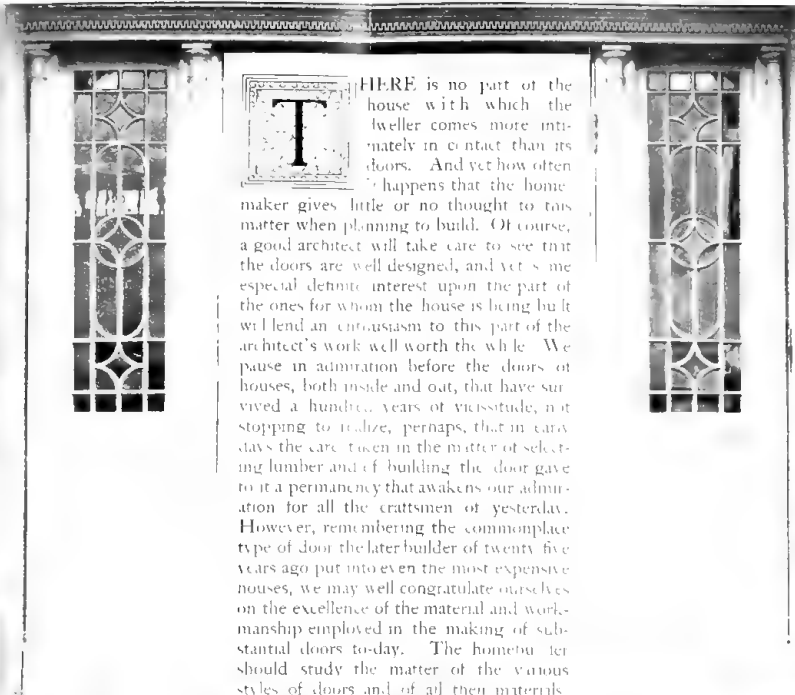 THERE is no part of the
house with which the
dweller comes more inti-
mately in contact than its
doors. And yet how often
happens that the home-
maker gives little or no thought to this
matter when planning to build. Of course,
a good architect will take care to see that
the doors are well designed, and yet some
especial definite interest upon the part of
the ones for whom the house is being built
will lend an enthusiasm to this part of the
architect's work well worth the while. We
pause in admiration before the doors of
houses, both inside and out, that have sur-
vived a hundred years of vicissitude, not
stopping to realize, perhaps, that in early
days the care taken in the matter of select-
ing lumber and of building the door gave
to it a permanency that awakens our admir-
ation for all the craftsmen of yesterday.
However, remembering the commonplace
type of door the later builder of twenty-five
years ago put into even the most expensive
houses, we may well congratulate ourselves
on the excellence of the material and work-
manship employed in the making of sub-
stantial doors to-day. The homebuilder
should study the matter of the various
styles of doors and of all their materials